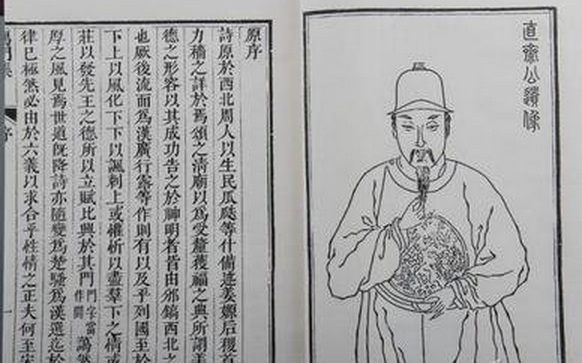 直齋公遺像
原序
詩原於西北周人以生民瓜瓞等什備述姜嫄后稷首
力穡之詳於焉頌之清廟以為受釐獲福之典所謂美
德之形容以其成功告之於神明者皆由邠鎬西北之
也厥後流而爲漢廣行露等作則有以及乎列國至於
下上以風化下下以諷刺上或維祈以盡羣下之情或
莊以發先王之德所以立賦比興於其門門字當作間藹然
厚之風見焉世道旣降詩亦隨變爲楚騷爲漢選迄於
律已極然必由於六義以求合乎性情之正夫何至宋
門集
序
一